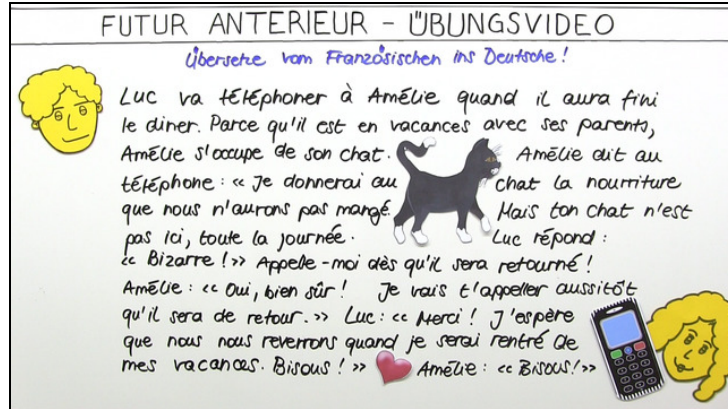 FUTUR ANTERIEUR - ÜBUNGSVIDEO
Übersetze vom Französischen ins Deutsche!
Luc va téléphoner à Amélie quand il aura fini
le diner. Parce qu'il est en vacances avec ses parents,
Amélie s'occupe de son chat. Amélie dit au
téléphone : « Je donnerai au chat la nourriture
que nous n'aurons pas mangé. Mais ton chat n'est
pas ici, toute la journée. Luc répond :
« Bizarre ! » Appelle-moi dès qu'il sera retourné !
Amélie : « Oui, bien sûr ! Je vais t'appeller aussitôt
qu'il sera de retour. » Luc : « Merci ! J'espère
que nous nous reverrons quand je serai rentré de
mes vacances. Bisous ! » Amélie : « Bisous ! »